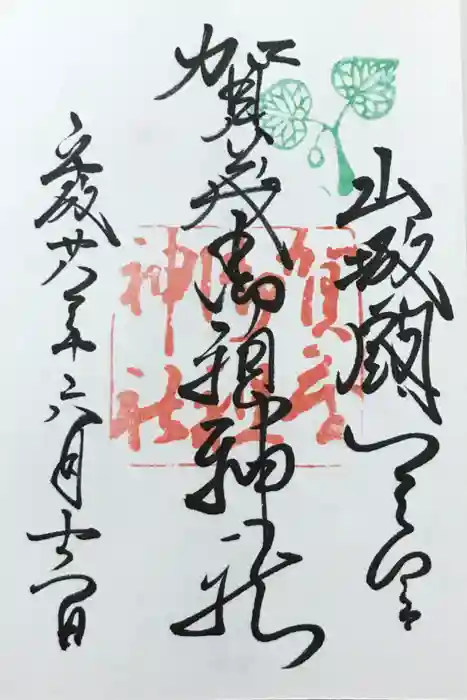 山城國一之宮
賀茂御祖神社
平成廿八年六月十六日
賀茂
御祖
神社